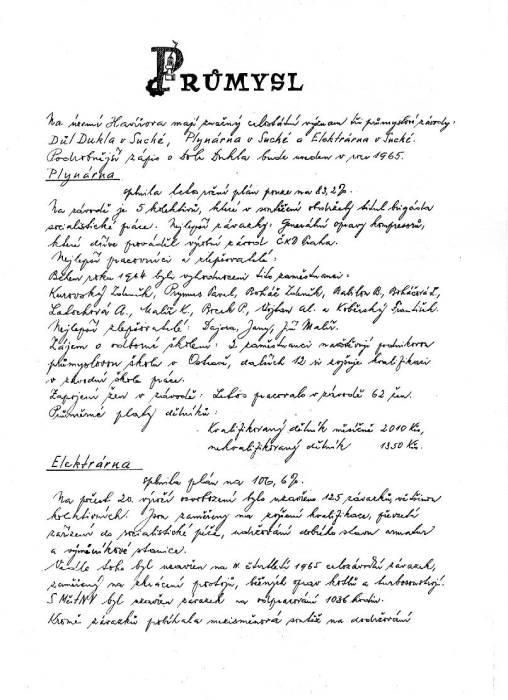 PRŮMYSL
Na území Havířova mají značný celostátní význam tři průmyslové závody:
Důl Dukla v Suché, Plynárna v Suché a Elektrárna v Suché.
Podrobnější zápis o dole Dukla bude veden v roce 1965.
Plynárna
splnila letos roční plán pouze na 83,2%.
Na závodě je 5 kolektivů, které v soutěžení obdržely titul brigáda
socialistické práce. Nejlepší závazky: Generální opravy kompresorů,
které dříve prováděl výrobní závod ČKD Praha.
Nejlepší pracovníci a zlepšovatelé:
Během roku 1964 byli vyhodnoceni tito zaměstnanci:
Kurovský Zdeněk, Prymus Pavel, Boháč Zdeněk, B.,
A., Malíř K., P., Al. a František.
Nejlepší zlepšovatelé: Jiří Malíř.
Zájem o odborné školení: 2 zaměstnanci navštěvují podnikovou
průmyslovou školu v Ostravě, dalších 12 si zvyšuje kvalifikaci
v závodní škole práce.
Zapojení žen v závodě: Letos pracovalo v závodě 62 žen.
Průměrné platy dělníků:
Kvalifikovaný dělník měsíčně 2010 Kčs,
nekvalifikovaný dělník 1350 Kčs.
Elektrárna
splnila plán na 106,6%.
Na počest 20. výročí osvobození bylo uzavřeno 125 závazků, většinou
kolektivních. Jsou zaměřeny na zvýšení kvalifikace, převzetí
zařízení do socialistické péče, udržování dobrého stavu armatur
a výměníkové stanice.
Vedle toho byl uzavřen na II. čtvrtletí 1965 celozávodní závazek,
zaměřený na zkrácení prostojů, běžných oprav kotlů a turbosoustrojí.
S MěstNV byl uzavřen závazek na odpracování 1036 hodin.
Kromě závazků probíhala mezisměnová soutěž na dodržování